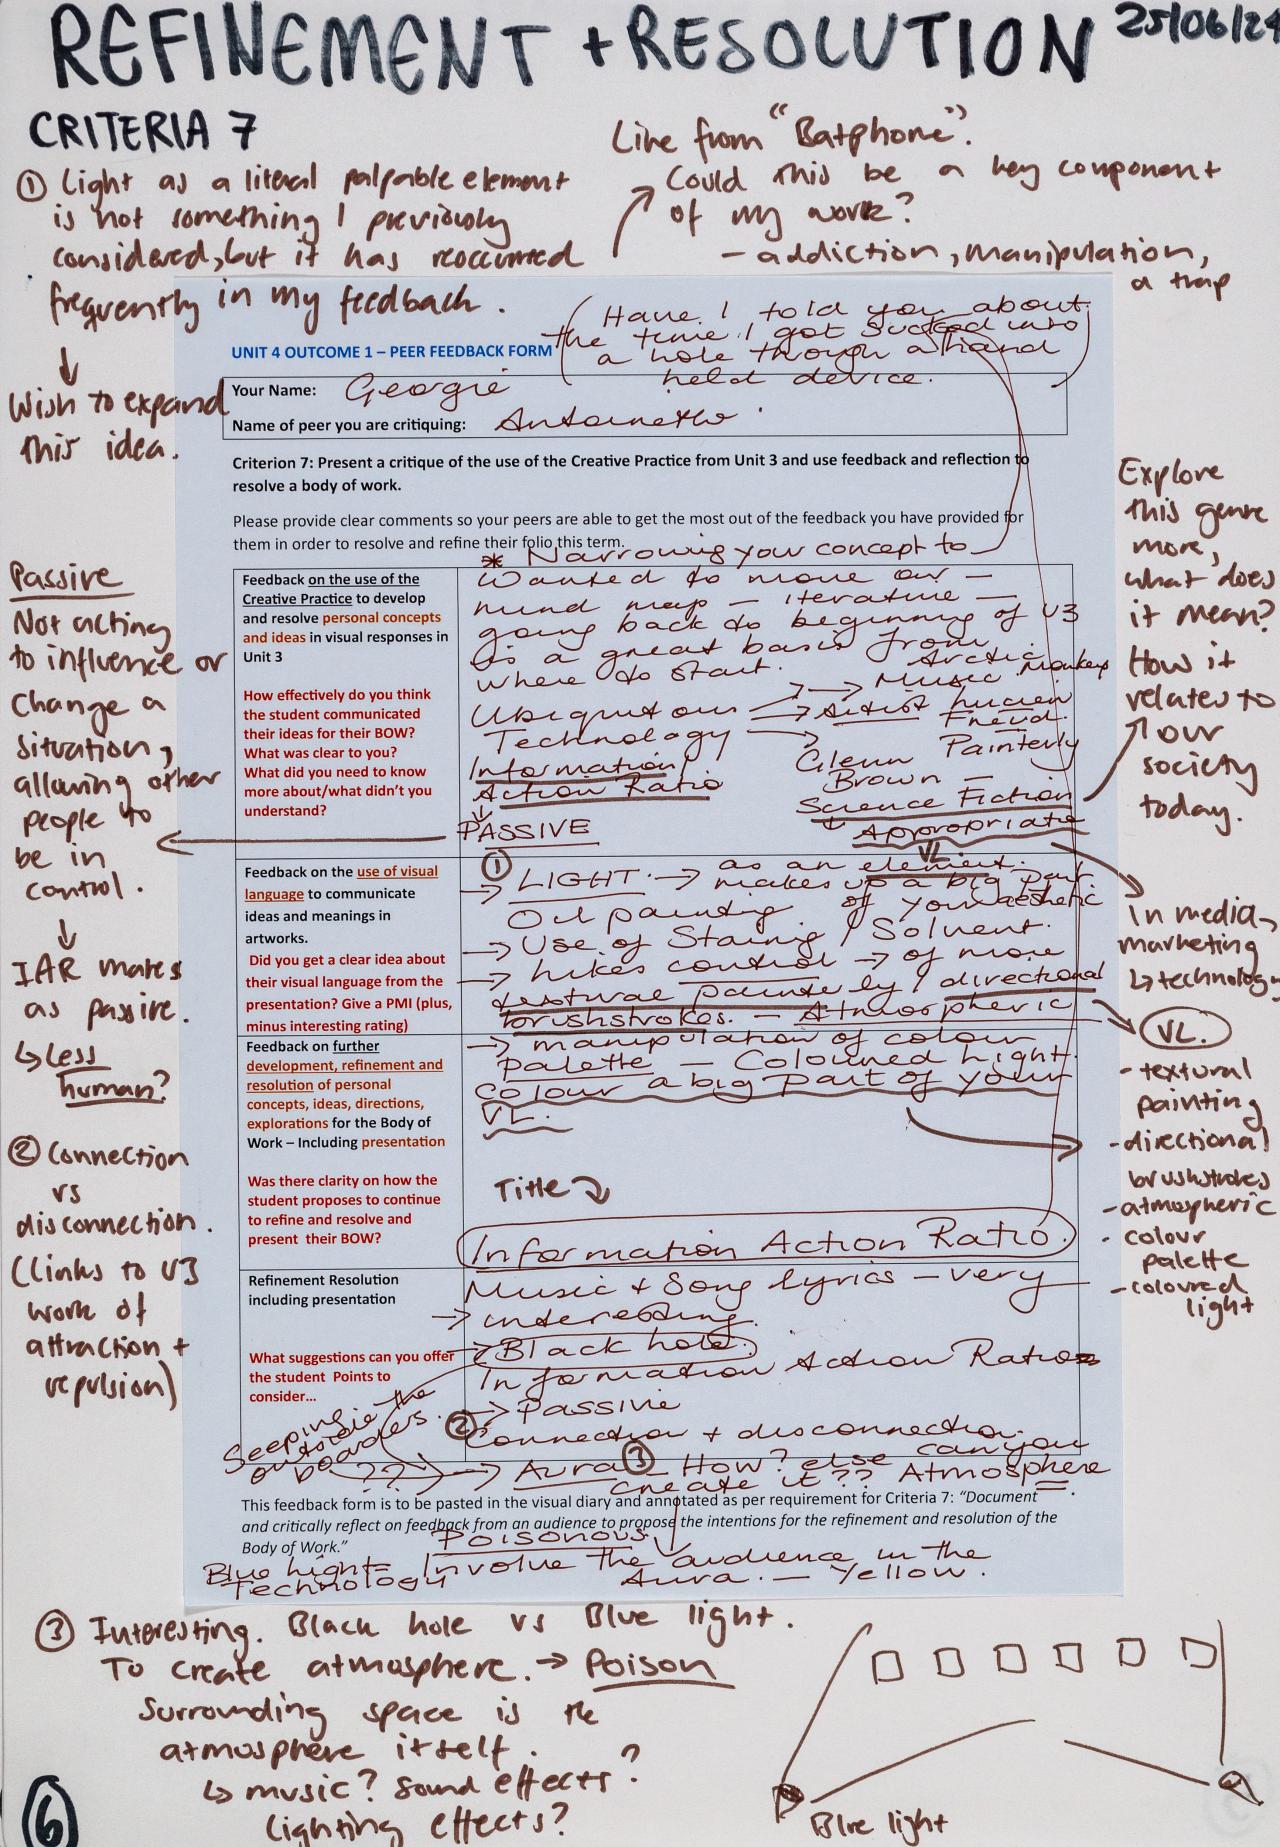 REFINEMENT + RESOLUTION
25/06/24
CRITERIA 7
① Light as a literal palpable element
is not something I previously
considered, but it has reoccurred
frequently in my feedback.
↓
Wish to expand
this idea.
Line from "Batphone".
Could this be a key component
of my work?
- addiction, manipulation,
a trap
(Have I told you about
the time I got sucked into
a hole through a hand
held device.)
UNIT 4 OUTCOME 1 – PEER FEEDBACK FORM
Your Name: Georgie
Name of peer you are critiquing:
Criterion 7: Present a critique of the use of the Creative Practice from Unit 3 and use feedback and reflection to
resolve a body of work.
Please provide clear comments so your peers are able to get the most out of the feedback you have provided for
them in order to resolve and refine their folio this term.
Feedback on the use of the
Creative Practice to develop
and resolve personal concepts
and ideas in visual responses in
Unit 3
How effectively do you think
the student communicated
their ideas for their BOW?
What was clear to you?
What did you need to know
more about/what didn't you
understand?
* Narrowing your concept to
wanted to move on –
mind map – iterature –
going back to beginning of U3
is a great basis from
where to start.
Arctic
Music Monkeys
Ubiquitous → Artist Lucien
Freud.
Technology → Glenn Painterly
Brown –
Information
Action Ratio
Science Fiction
↓
PASSIVE
Appropriate
Passive
Not acting
to influence or
change a
situation,
allowing other
people to
be in
control.
↓
IAR mates
as passive.
↳ Less
human?
Explore
this genre
more,
what does
it mean?
How it
relates to
our
society
today.
In media,
marketing
↳ technology
Feedback on the use of visual
language to communicate
ideas and meanings in
artworks.
Did you get a clear idea about
their visual language from the
presentation? Give a PMI (plus,
minus interesting rating)
①
→ LIGHT. → as an element. VL
makes up a big part
of your aesthetic
Oil painting.
→ Use of Staing / Solvent.
→ Likes control → of more
textural painterly / directional
brushstrokes. – Atmospheric
VL.
- textural
painting
- directional
brushstrokes
- atmospheric
- colour
palette
- coloured
light
Feedback on further
development, refinement and
resolution of personal
concepts, ideas, directions,
explorations for the Body of
Work – Including presentation
Was there clarity on how the
student proposes to continue
to refine and resolve and
present their BOW?
→ manipulation of colour
palette – Coloured Light.
Colour a big part of your
VL.
Title
Information Action Ratio.
② Connection
vs
disconnection.
(links to U3
work of
attraction +
repulsion)
Refinement Resolution
including presentation
What suggestions can you offer
the student Points to
consider…
Music + Song lyrics – very
→ interesting.
→ Black hole.
Information Action Ratio
→ Passive
② Connection + disconnection.
→ Aura ③ – How? else can you
create it?? Atmosphere
Seeping
outside the
boarders.
??
This feedback form is to be pasted in the visual diary and annotated as per requirement for Criteria 7: "Document
and critically reflect on feedback from an audience to propose the intentions for the refinement and resolution of the
Body of Work."
Poisonous
Blue Light =
Technology
Involve the audience in the
Aura. – Yellow.
③ Interesting. Black hole vs Blue light.
To create atmosphere. → Poison
Surrounding space is the
atmosphere itself.
↳ music? Sound effects?
Lighting effects?
Blue light
6